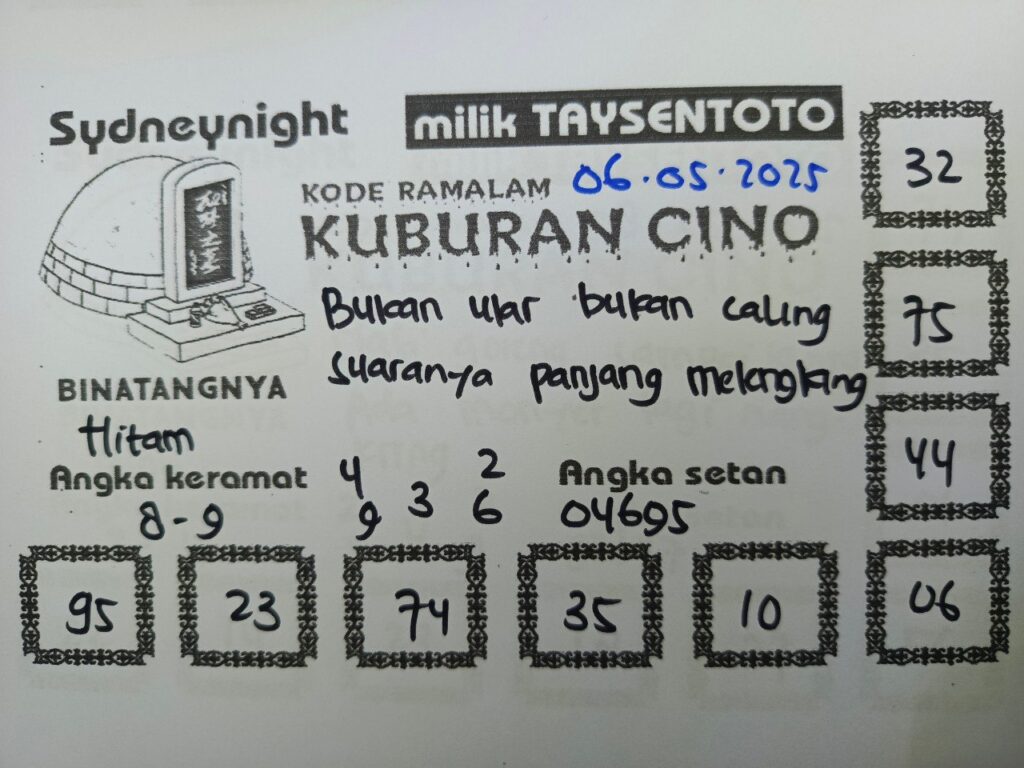 Sydneynight
milik TAYSENTOTO
KODE RAMALAM 06.05.2025
KUBURAN CINO
Bukan ular bukan caling
suaranya panjang melengking
BINATANGNYA
Hitam
Angka keramat
8-9
4 2
9 3 6
Angka setan
04695
32
75
44
95 23 74 35 10 06